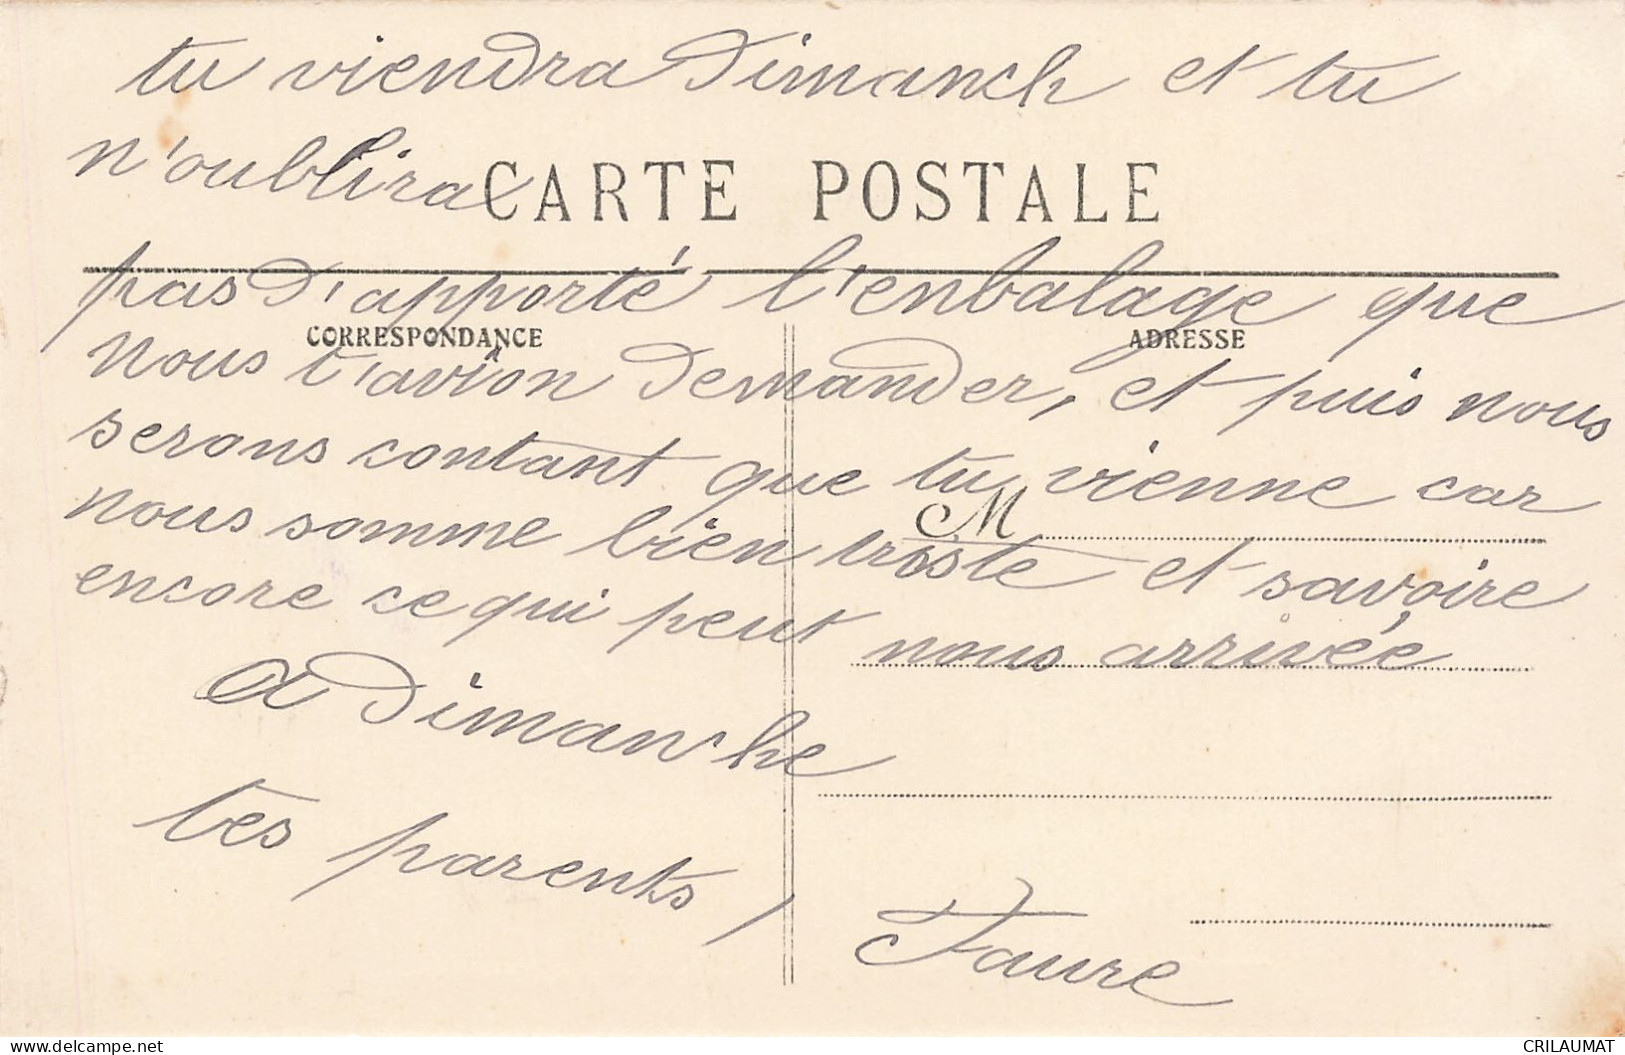 tu viendra dimanch et tu
n'oublira
CARTE POSTALE
pas d'apporté l'enbalage que
CORRESPONDANCE
ADRESSE
nous t'avion demander, et puis nous
serons contant que tu vienne car
M
nous somme bien triste et savoire
encore ce qui peut nous arrivée
a dimanche
tes parents,
Faure
www.delcampe.net
CRILAUMAT